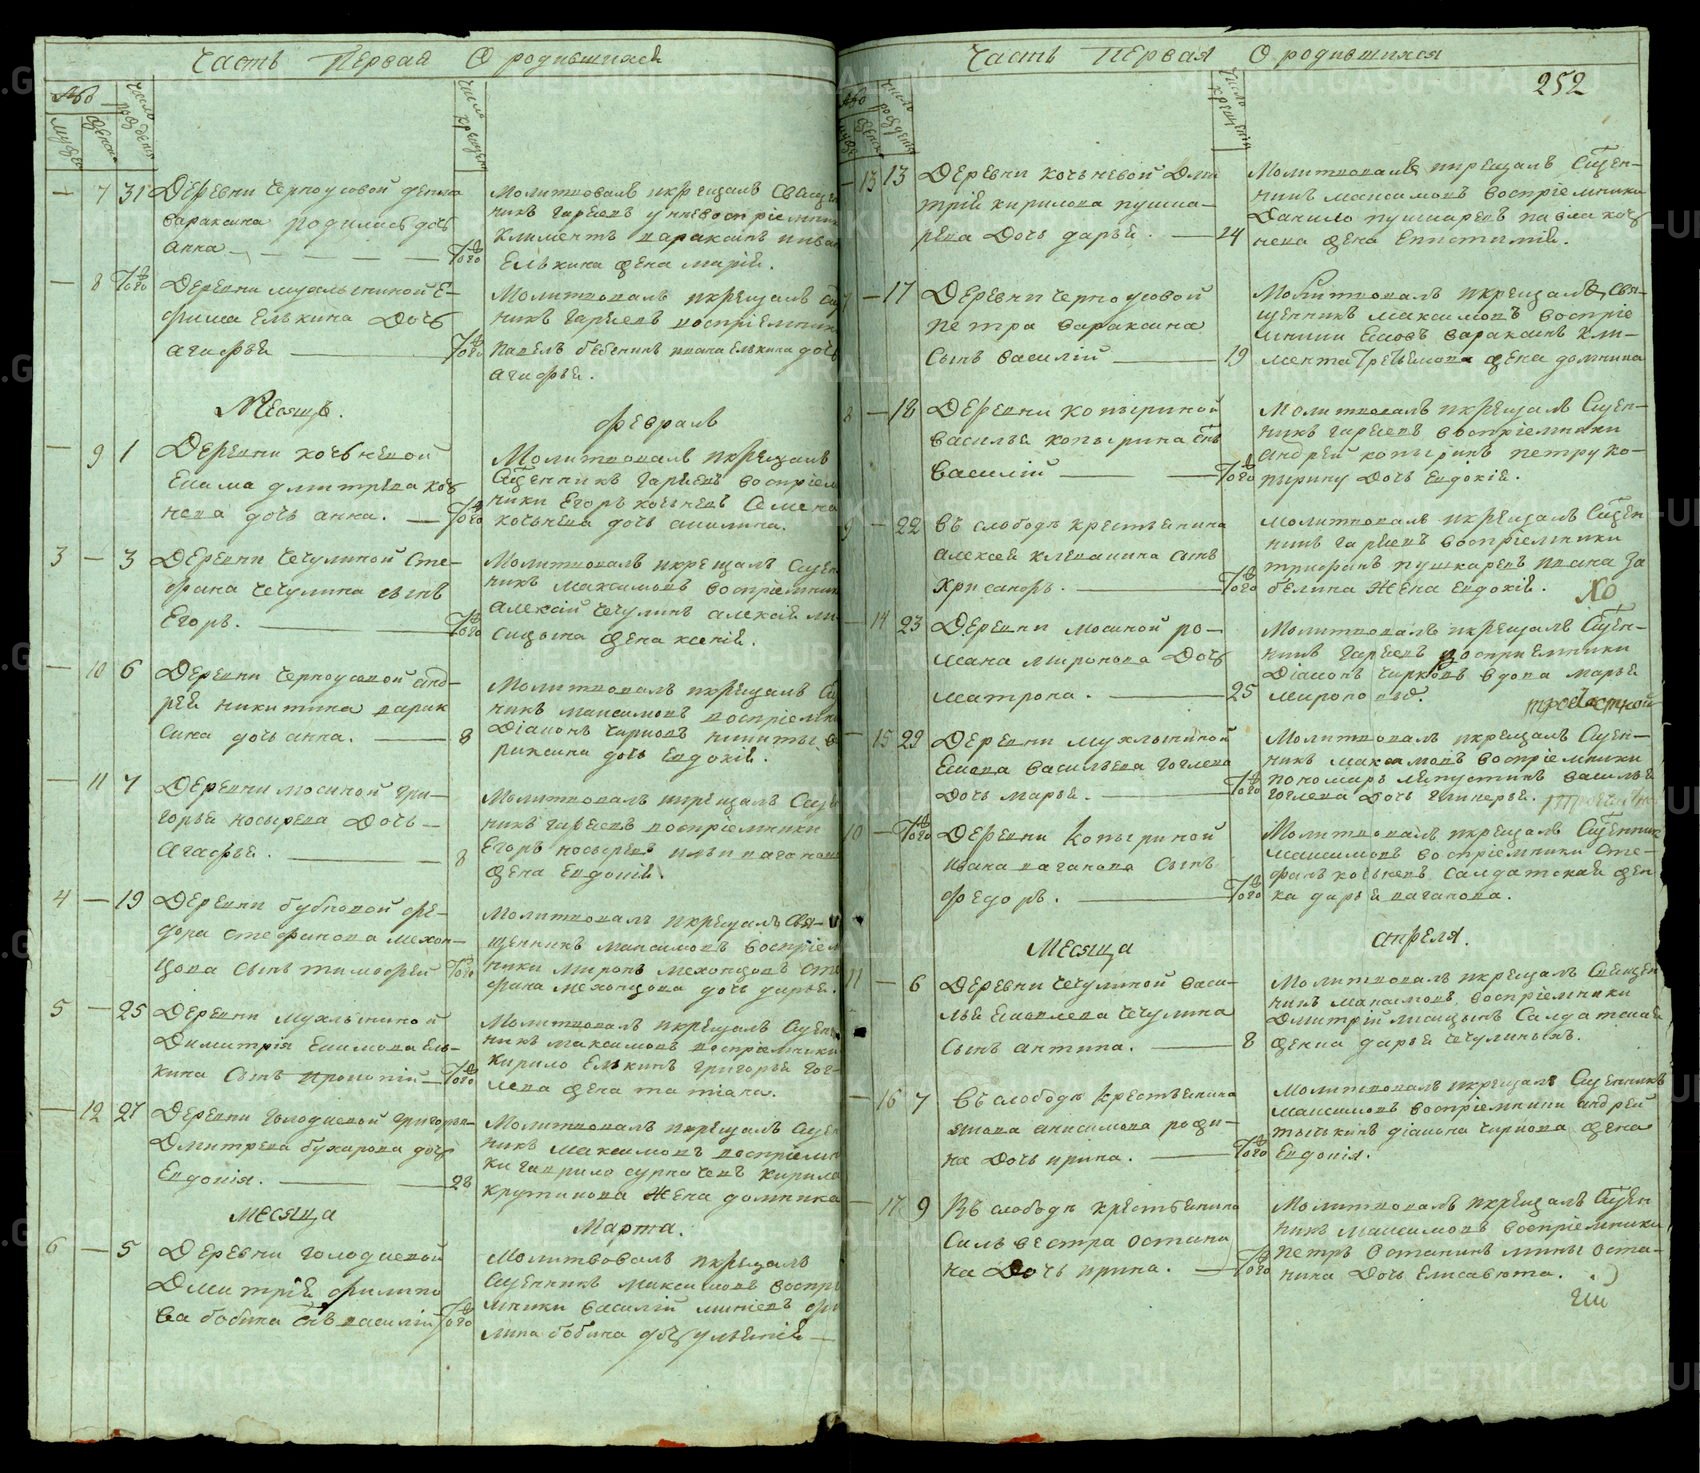 Часть Первая О родившихся
№
мужеска
женска
число рождения
число крещения
— 7 31 Деревни Черноусовой
Вараксина родилась дочь
Анна — — — — — Того
Молитвовалъ икрестилъ Священ
никъ Гаряевъ
Климентъ Вараксинъ
Елькина жена Марія.
— 8 Того Деревни Мухлыниной Е-
фима Елькина Дочь
Агафья — Того
Молитвовалъ икрещалъ
никъ Гаряевъ воспріемники
Павелъ Бебенинъ Ивана Елькина дочь
Агафья.
Месяцъ. Февраль
— 9 1 Деревни Кочьневой
Екима Дмитрева Коч
нева дочь Анна. — Того
Молитвовалъ икрещалъ
Сщенникъ Гаряевъ воспріем
ники Егоръ Кочьневъ Семена
Кочьнева дочь Акилина.
3 — 3 Деревни Чечулиной Сте-
фана Чечулина сынъ
Егоръ. — Того
Молитвовалъ икрещалъ Сщен
никъ Максимовъ воспріемник
Алексій Чечулинъ Алексія Ли
сицына жена Ксенія.
— 10 6 Деревни Черноусовой Анд-
рей Никитина Варак
сина дочь Анна. — 8
Молитвовалъ икрещалъ Сщ
никъ Максимовъ воспріемни
Діамонъ Чирковъ Никиты Ва
раксина дочь Евдокія.
— 11 7 Деревни Мосиной Гри-
горья Носырева Дочь —
Агафья. — 8
Молитвовалъ икрещалъ Сщен
никъ Гаряевъ воспріемники
Егоръ Носыревъ Ильи Ваганова
жена Евдокія
4 — 19 Деревни Бубновой Фе-
дора Стефанова Мехон-
цова Сынъ Тимофей Того
Молитвовалъ икрещалъ Свя-
щенникъ Максимовъ воспріем
ники Миронъ Мехонцовъ Сте
фана Мехонцова дочь Дарья.
5 — 25 Деревни Мухлыниной
Димитрія Екимова Ель-
кина Сынъ Прокопій — Того
Молитвовалъ икрещалъ Сщен
никъ Максимовъ воспріемники
Кирило Елькинъ Григорья Гог-
лева жена Татіана.
— 12 27 Деревни Голодаевой Григорья
Дмитрева Бухарова дочь
Евдокія. — 28
Молитвовалъ икрещалъ Сщен
никъ Максимовъ воспріемни
ки Гаврило Сурначевъ Кирила
Крутикова жена Домника
Месяца Марта.
6 — 5 Деревни Голодаевой
Дмитрія Филипо
ва Бабина Снъ Василій Того
Молитвовалъ икрещалъ
Сщенникъ Максимовъ воспрі
мники Василій Минѣевъ Фи
липа Бабина дочь Ульянія —
Часть Первая О родившихся
252
№
мужеска
женска
число рождения
число крещенія
— 13 13 Деревни Кочьневой Дми
трія Кирилова Пушка-
рева Дочь Дарья. — 24
Молитвовалъ икрещалъ Сщен-
никъ Максимовъ воспріемники
Данило Пушкаревъ Павла Коч
нева жена Епистимія.
7 — 17 Деревни Черноусовой
Петра Вараксина
Сынъ Василій — 19
Молитвовалъ икрещалъ, Свя-
щенникъ Максимовъ воспріе
мники Іаковъ Вараксинъ Кли-
мента Третьякова жена Домника
8 — 18 Деревни Копыриной
Василья Копырина Снъ
Василій — Того
Молитвовалъ икрещалъ Сщен-
никъ Гаряевъ воспріемники
Андрей Копыринъ Петру Ко-
пырину Дочь Евдокія.
9 — 22 Въ слободѣ крестьянина
Алексея Клевакина Сынъ
Хрисанфъ. — Того
Молитвовалъ икрещалъ Сщен
никъ Гаряевъ воспріемники
Трифонъ Пушкаревъ Ивана За
белина Жена Евдокія.
— 14 23 Деревни Мосиной Ро-
мана Миронова Дочь
Матрона. — 25
Молитвовалъ икрещалъ Сщен-
никъ Гаряевъ воспріемники
Діамонъ Чирковъ вдова Марья
Миронова.
— 15 29 Деревни Мухлыниной
Екима Васильева Гоглева
Дочь Марья. — Того
Молитвовалъ икрещалъ Сщен-
никъ Максимовъ воспріемники
пономарь Липустинъ Василья
Гоглева Дочь Гликерья.
10 — Того Деревни Копыриной
Ивана Ваганова Сынъ
Федоръ. — Того
Молитвовалъ икрещалъ Сщенник
Максимовъ воспріемники Сте-
фанъ Кочьневъ Салдатская жен
ка Дарья Ваганова.
Месяца Апреля.
11 — 6 Деревни Чечулиной Васи-
лья Яковлева Чечулина
Сынъ Антипа. — 8
Молитвовалъ икрещалъ Священ
никъ Максимовъ воспріемники
Дмитрій Лисицынъ Салдатская
женка Дарья Чечулиныхъ.
— 16 7 Въ слободѣ Крестьянина
Якова Анисимова Рофи-
на Дочь Ирина. — Того
Молитвовалъ икрещалъ Сщенникъ
Максимовъ воспріемники Андрей
Тычькинъ Діамона Чиркова жена
Евдокія.
— 17 9 Въ слободѣ Крестьянина
Сильвестра Остани
на Дочь Ирина. — Того
Молитвовалъ икрещалъ Сщен
никъ Максимовъ воспріемники
Петръ Останинъ Мины Оста-
нина Дочь Елисавета.